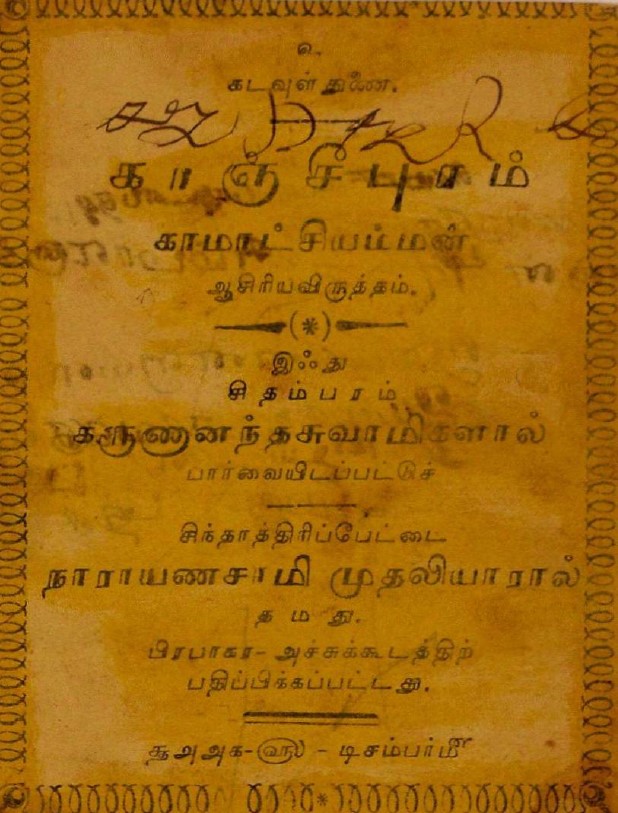 உ
கடவுள் துணை.
காஞ்சீபுரம்
காமாட்சியம்மன்
ஆசிரியவிருத்தம்.
இஃது
சிதம்பரம்
கருணானந்தசுவாமிகளால்
பார்வையிடப்பட்டுச்
சிந்தாத்திரிப்பேட்டை
நாராயணசாமி முதலியாரால்
தமது.
பிரபாகர-அச்சுக்கூடத்திற்
பதிப்பிக்கப்பட்டது.
௲அஅக-௵ - டிசம்பர்௴